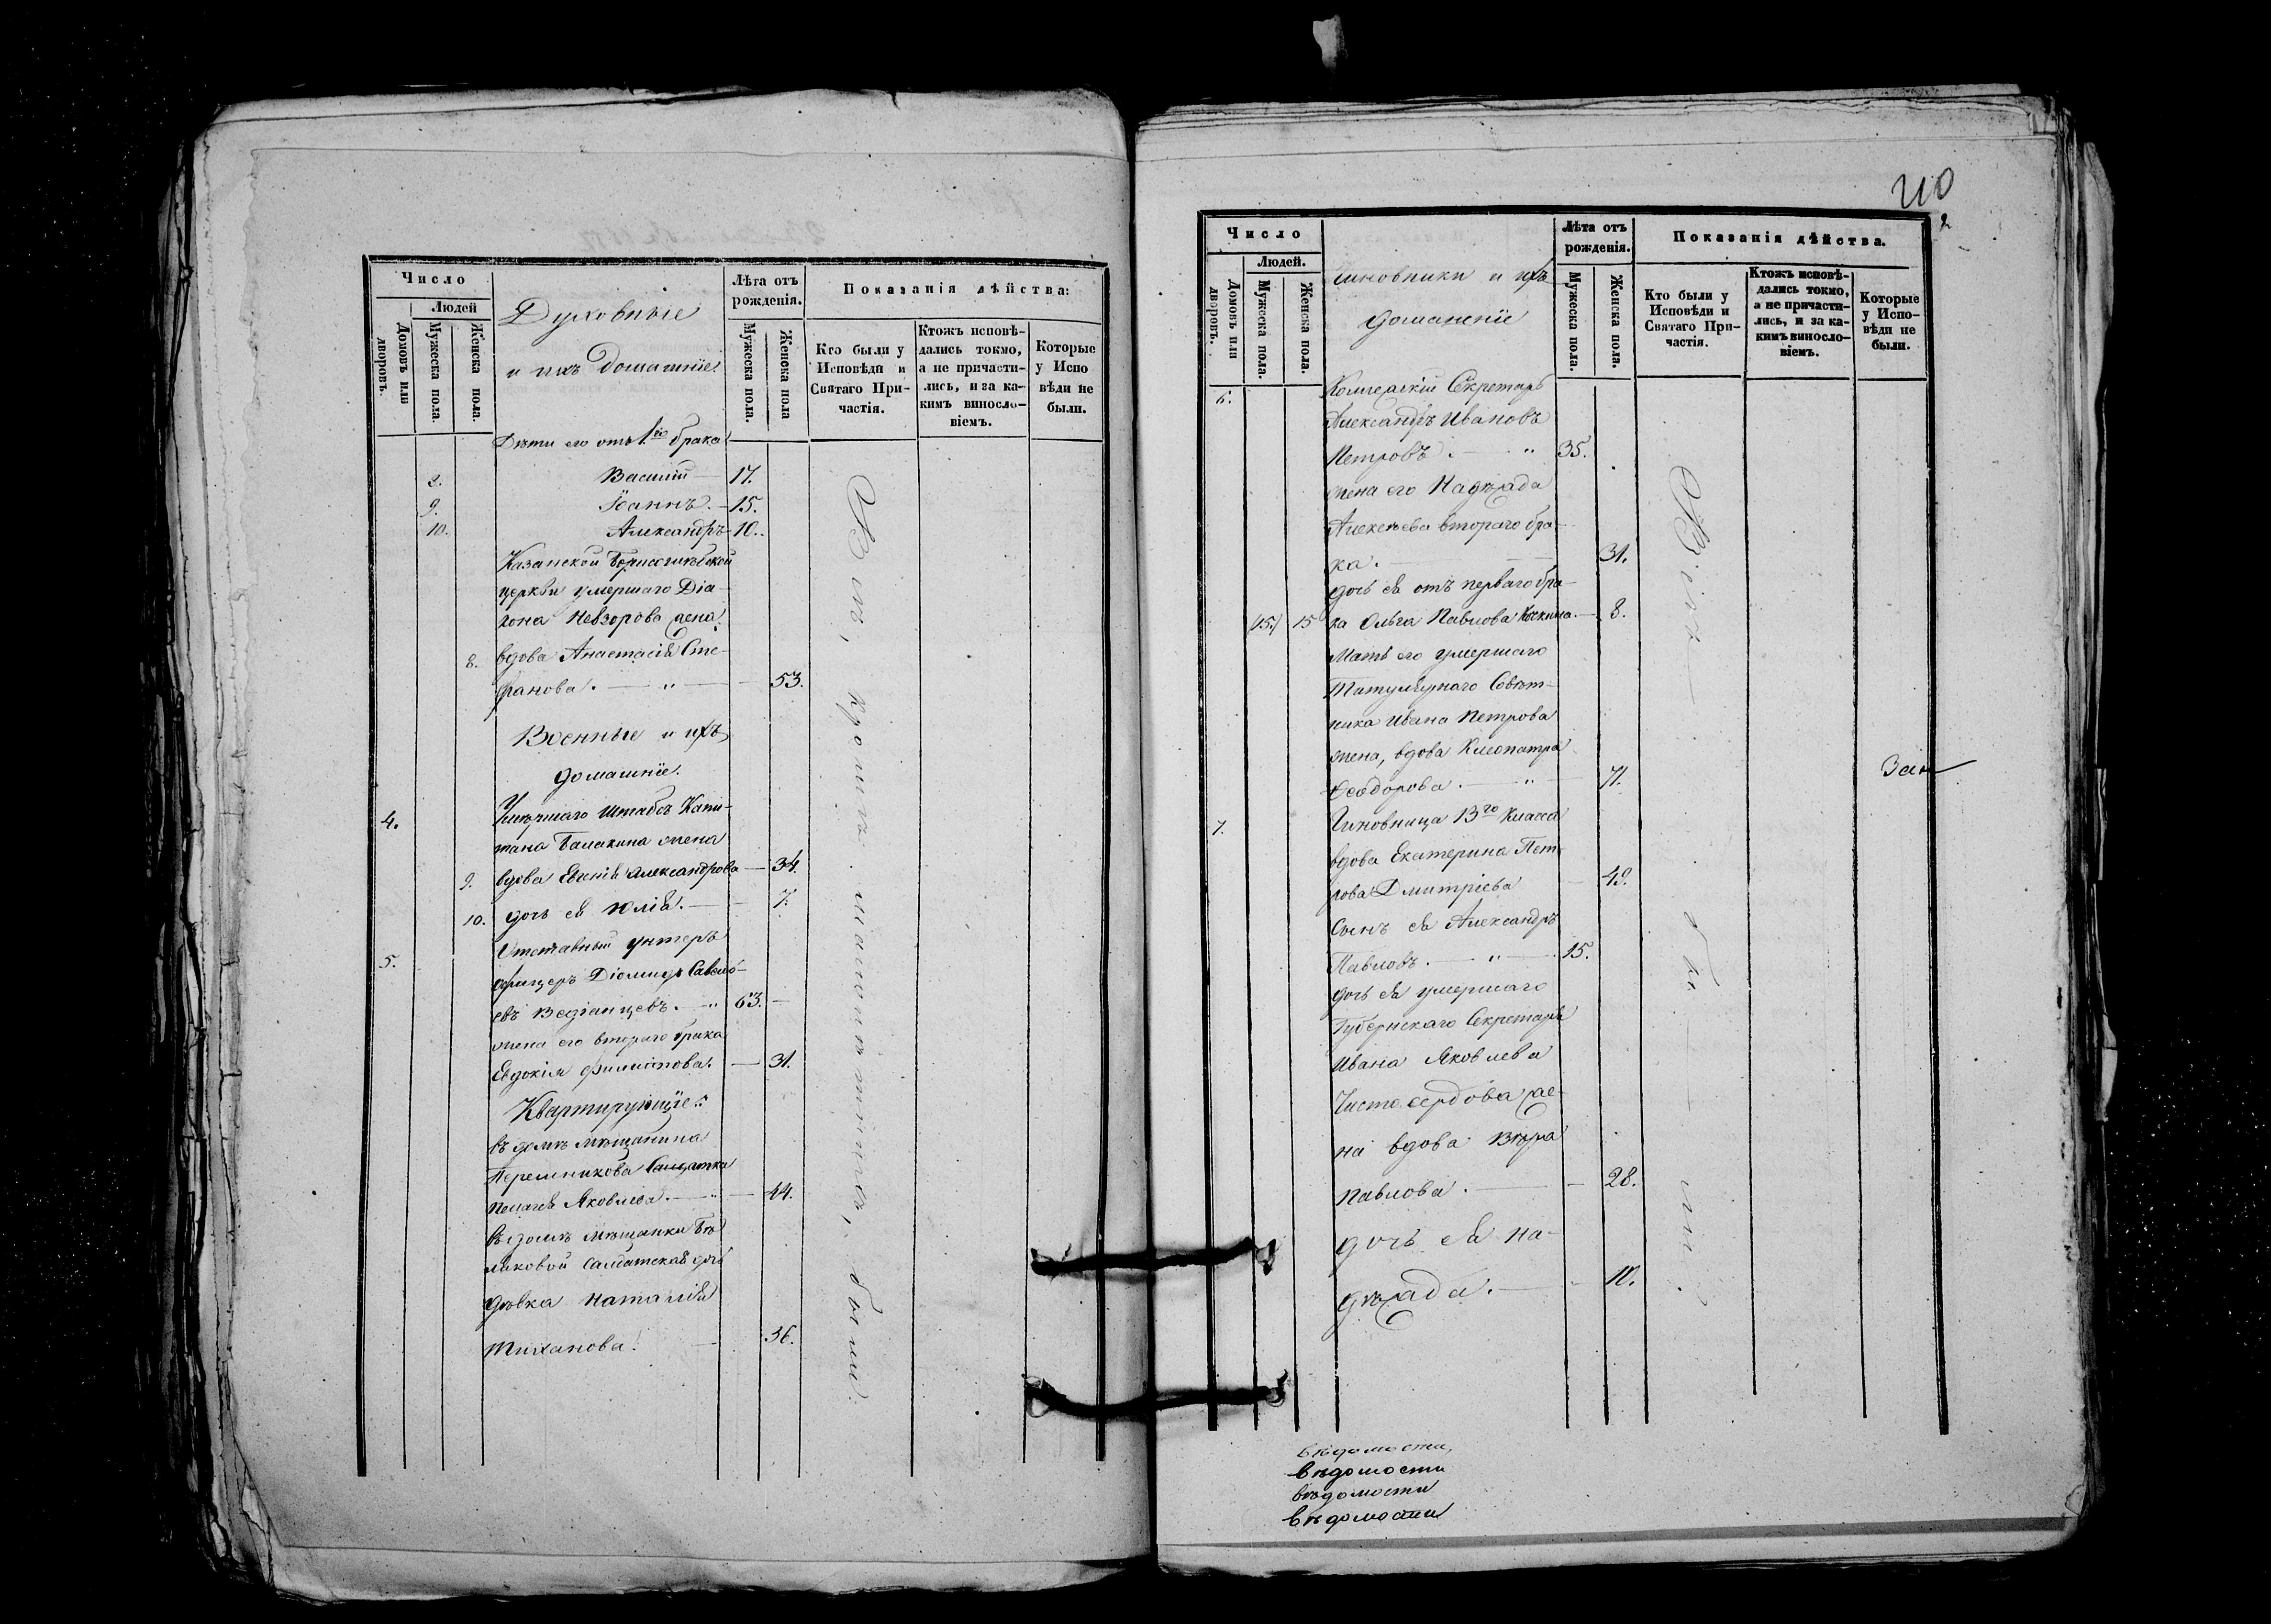 Число
Людей
Домовъ или дворовъ.
Мужеска пола.
Женска пола.
Духовные
и ихъ домашніе
Лѣта отъ рожденія.
Мужеска пола.
Женска пола
Показанія дѣйства:
Кто были у Исповѣди и Святаго Причастія.
Ктожъ исповѣдались токмо, а не причастились, и за какимъ винословіемъ.
Которые у Исповѣди не были.
Дѣти его отъ 1го брака
8. Василій 17.
9. Іоаннъ. 15.
10. Александръ 10.
Казанской Борисоглѣбской
церкви умершаго Діа-
кона Невзорова жена
8. вдова Анастасія Сте-
фанова. „ 53.
Военные и ихъ
домашніе.
4. Умершаго Штабсъ Капи-
тана Балакина жена
9. вдова Евгенія Александрова 34.
10. дочь ея Юлія. 7.
5. Отставный унтеръ
офицеръ Діомидъ Савель-
евъ . „ 63.
жена его втораго брака
Евдокія Филиппова. 31.
Квартирующіе:
въ домѣ мѣщанина
Перемникова Салдатка
Пелагея Яковлева. „ 44.
въ домѣ мѣщанки Бѣ-
ликовой Салдатская дочь
дѣвка Наталія
Тиханова. 36.
Всѣ, кромѣ , были.
210
2
Число
Людей.
Домовъ или дворовъ.
Мужеска пола.
Женска пола.
Чиновники и ихъ
домашніе
Лѣта отъ рожденія.
Мужеска пола.
Женска пола.
Показанія дѣйства.
Кто были у Исповѣди и Святаго Причастія.
Ктожъ исповѣдались токмо, а не причастились, и за какимъ винословіемъ.
Которые у Исповѣди не были.
6. Коллежскій Секретарь
Александръ Ивановъ
Петровъ. „ 35.
жена его Надежда
Алексѣева втораго бра-
ка. 31.
дочь ея отъ перваго бра-
15. 15 ка Ольга Павлова 8.
Мать его умершаго
Титулярнаго Совѣт-
ника Ивана Петрова
жена, вдова Клеопатра
Феодорова. „ 71.
7. Чиновница 13го Класса
вдова Екатерина Пет-
рова Дмитріева 49.
Сынъ ея Александръ
Павловъ. „ 15.
дочь ея умершаго
Губернскаго Секретаря
Ивана Яковлева
Чистосердова же-
на вдова Вѣра
Павлова. 28.
дочь ея На-
дежда. 10.
Всѣ бы ли.
Зак
вѣдомости,
вѣдомости
вѣдомости
вѣдомости